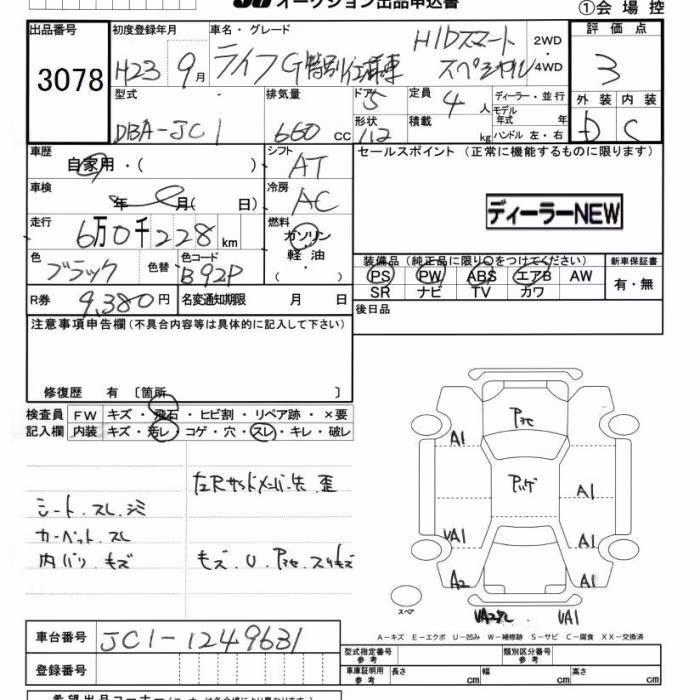 オークション出品申込書
①会場控
出品番号
3078
初度登録年月
H23 9月
車名・グレード
ライフ G特別仕様車 HIDスマートスペシャル
2WD・4WD
評価点
3
外装 内装
D C
型式
DBA-JC1
排気量
660 cc
ドア
5
形状
112
定員
4人
積載
kg
ディーラー・並行
モデル年式 年
ハンドル 左・右
車歴
自家用・( )
シフト
AT
車検
年 月( 日)
冷房
AC
走行
6万0千228 km
燃料
ガソリン
軽油
( )
色
ブラック
色替
色コード
B92P
R券
9,380円
名変通知期限 月 日
セールスポイント (正常に機能するものに限ります)
ディーラーNEW
装備品(純正品に限り○をつけてください)
PS PW ABS エアB AW
SR ナビ TV カワ
新車保証書
有・無
後日品
注意事項申告欄(不具合内容等は具体的に記入して下さい)
修復歴 有 〔箇所 〕
検査員 FW キズ・飛石・ヒビ割・リペア跡・×要
記入欄 内装 キズ・汚レ・コゲ・穴・スレ・キレ・破レ
左Rサイドメンバー先 歪
シート.スレ.シミ
カーペット.スレ
内バリ.キズ
キズ.U.アセ.スリキズ
アセ
A1
A1
VA1
A1
A2
A1
スペア
VA1
A-キズ E-エクボ U-凹み W-補修跡 S-サビ C-腐食 XX-交換済
車台番号
JC1-1249631
登録番号
型式指定番号 参考
類別区分番号 参考
車庫証明用 参考
長さ cm 幅 cm 高さ cm
希望出品コーナー